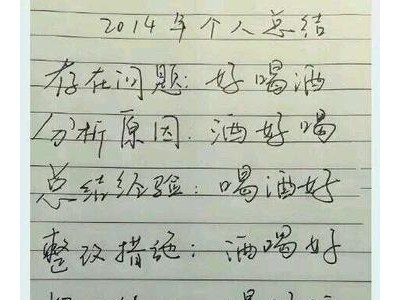 2014年个人总结
存在问题：好喝酒
分析原因：酒好喝
总结经验：喝酒好
整改措施：酒喝好